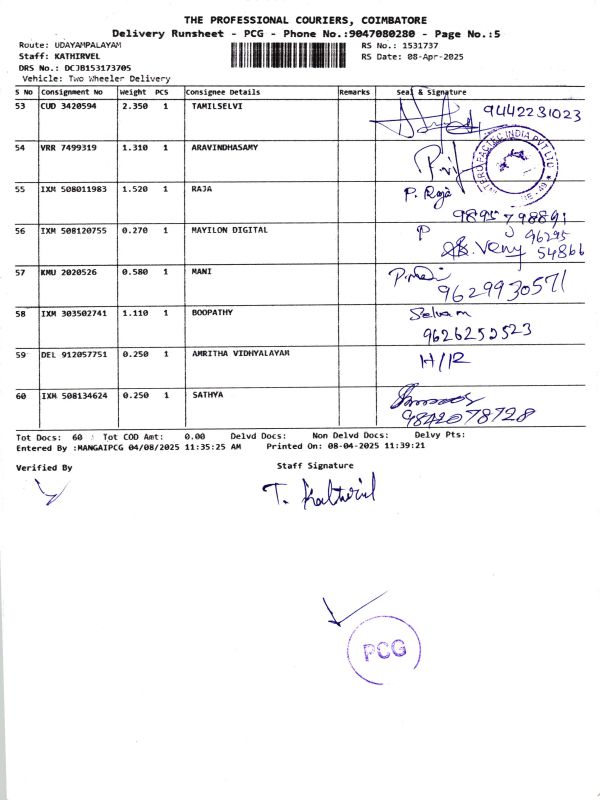 THE PROFESSIONAL COURIERS, COIMBATORE
Delivery Runsheet - PCG - Phone No.:9047080280 - Page No.:5
Route: UDAYAMPALAYAM
RS No.: 1531737
Staff: KATHIRVEL
RS Date: 08-Apr-2025
DRS No.: DCJB153173705
Vehicle: Two Wheeler Delivery
S No Consignment No Weight PCS Consignee Details Remarks Seal & Signature
53 CUD 3420594 2.350 1 TAMILSELVI 9442231023
54 VRR 7499319 1.310 1 ARAVINDHASAMY
55 IXM 508011983 1.520 1 RAJA P. Raja
56 IXM 508120755 0.270 1 MAYILON DIGITAL
54866
57 KMU 2020526 0.580 1 MANI P. Mani
9629930571
58 IXM 303502741 1.110 1 BOOPATHY Selvam
9626252523
59 DEL 912057751 0.250 1 AMRITHA VIDHYALAYAM H/R
60 IXM 508134624 0.250 1 SATHYA
9842078728
Tot Docs: 60 Tot COD Amt: 0.00 Delvd Docs: Non Delvd Docs: Delvy Pts:
Entered By :MANGAIPCG 04/08/2025 11:35:25 AM Printed On: 08-04-2025 11:39:21
Verified By Staff Signature
PCG